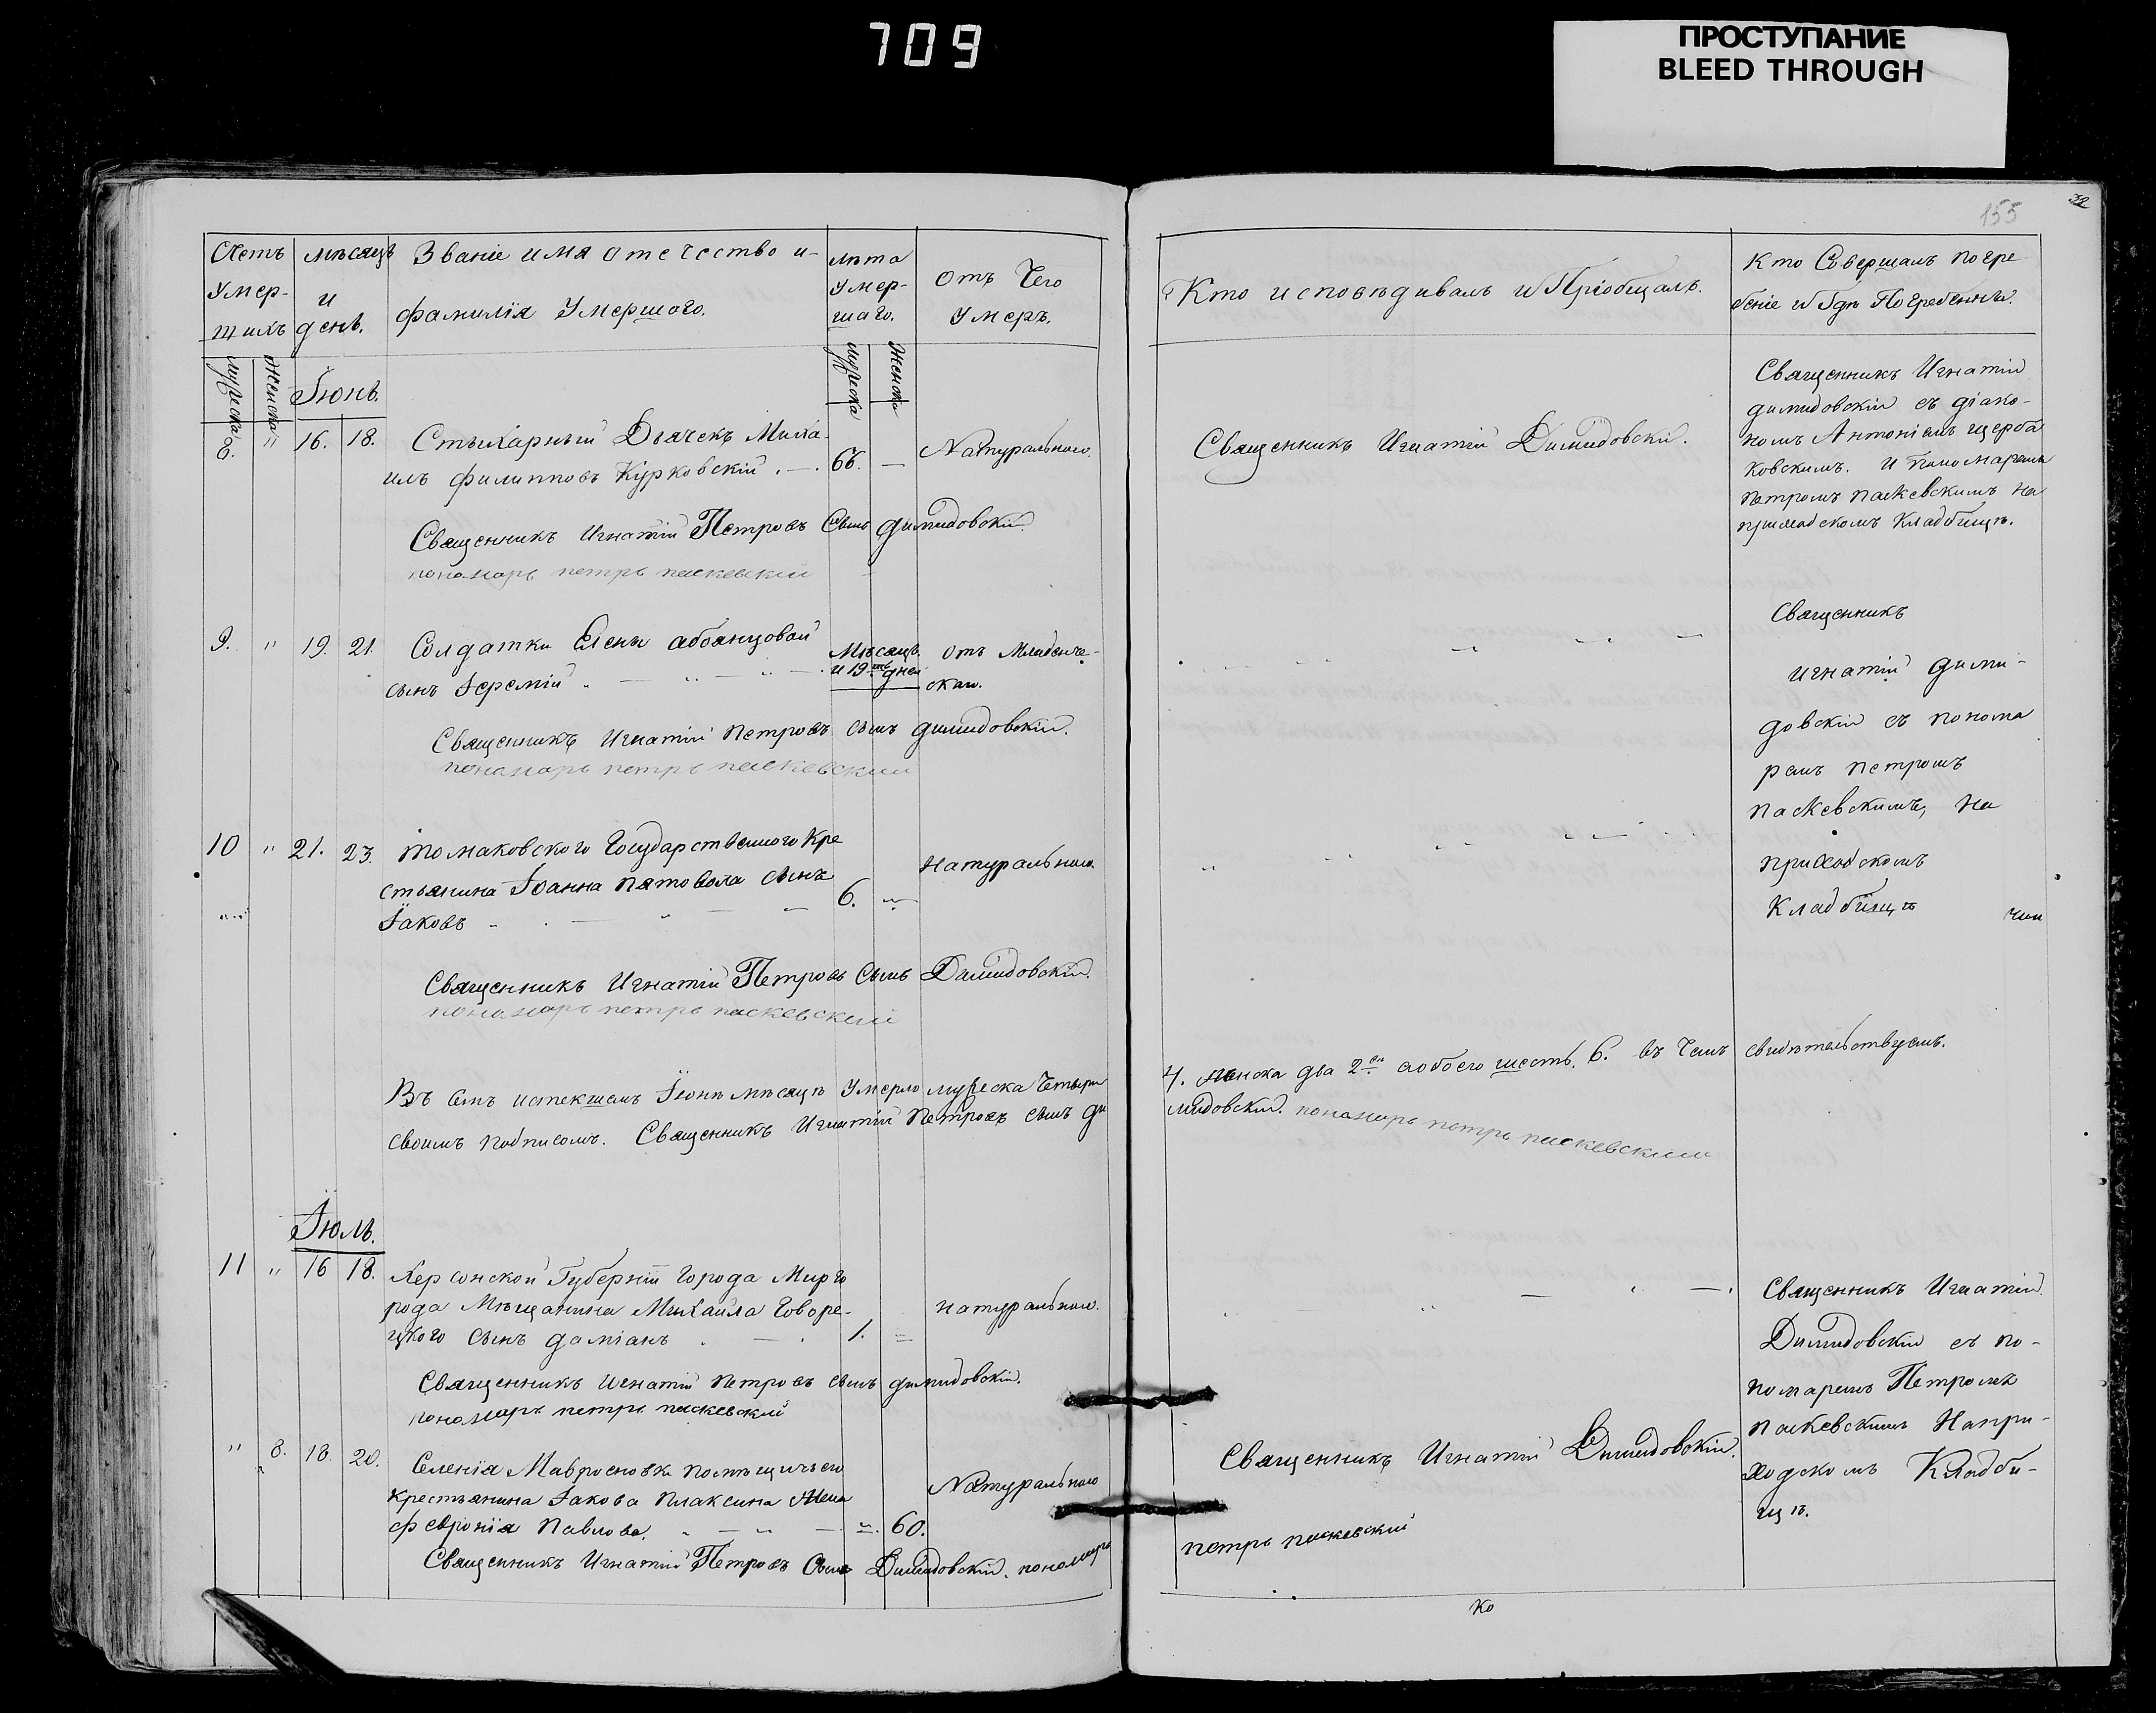 709
ПРОСТУПАНИЕ
BLEED THROUGH
155
32
Счетъ Умер-шихъ
мѣсяцъ и день.
Званіе имя отечество и фамилія Умершого.
лѣта Умер-шаго.
Отъ Чего Умеръ.
Кто исповѣдивалъ и Пріобщалъ.
Кто Совершалъ погре
беніе и Гдѣ Погребенны.
мужеска
женска
Іюнь.
мужеска
женска
8. " 16. 18. Стыхарный Дьячекъ Миха-
илъ филипповъ Курковскій . — . 66. — Натуральною.
Священникъ Игнатій Димидовскій.
Священникъ Игнатій
димидовскій съ діако-
номъ Антоніемъ щерба
ковскимъ. и пономаремъ
петромъ паскевскимъ на
приходскомъ Кладбищѣ.
Священникъ Игнатій Петровъ Сынъ димидовскій
пономарь петръ паскевский
9. " 19. 21. Солдатки Елены абоянцовой
сынъ Іеремій . — Мѣсяцъ. и 19ть дней
отъ Младенче-
ской.
Священникъ
игнатій дими-
довскій съ понома
ремъ петромъ
паскевскимъ, на
приходскомъ
Кладбищѣ
Священникъ Игнатій петровъ сынъ димидовскій.
пономарь петръ паскевский
10 " 21. 23. томаковского Государственного Кре
стьянина Іоанна пятовола сынъ
Іаковъ 6. Натуральною.
Священникъ Игнатій Петровъ Сынъ Димидовскій.
пономарь петръ паскевский
Въ семъ истекшемъ Іюнѣ мѣсяцѣ Умерло мужеска Четыри 4. женска два 2. обоего шесть. 6. въ Чемъ свидѣтельствуемъ.
своимъ подписомъ. Священникъ Игнатій Петровъ сынъ димидовскій. пономарь петръ паскевский
Іюль.
11 " 16 18. Херсонской Губерніи Города Мирго
рода Мѣщанина Михаила Говоре-
цкого сынъ даміанъ 1. натуральною.
Священникъ Игнатій
Димидовскій съ по-
номаремъ Петромъ
паскевскимъ На при-
ходскомъ Кладби-
щѣ.
Священникъ Игнатій петровъ сынъ димидовскій.
пономарь петръ паскевский
" 8. 18. 20. Селенія Мавросновки помѣщичьего
крестьянина Іакова плаксина Жена
февронія Павлова. 60. Натуральною
Священникъ Игнатій Димидовскій.
Священникъ Игнатій Петровъ Сынъ Димидовскій. пономарь петръ паскевский
Ко